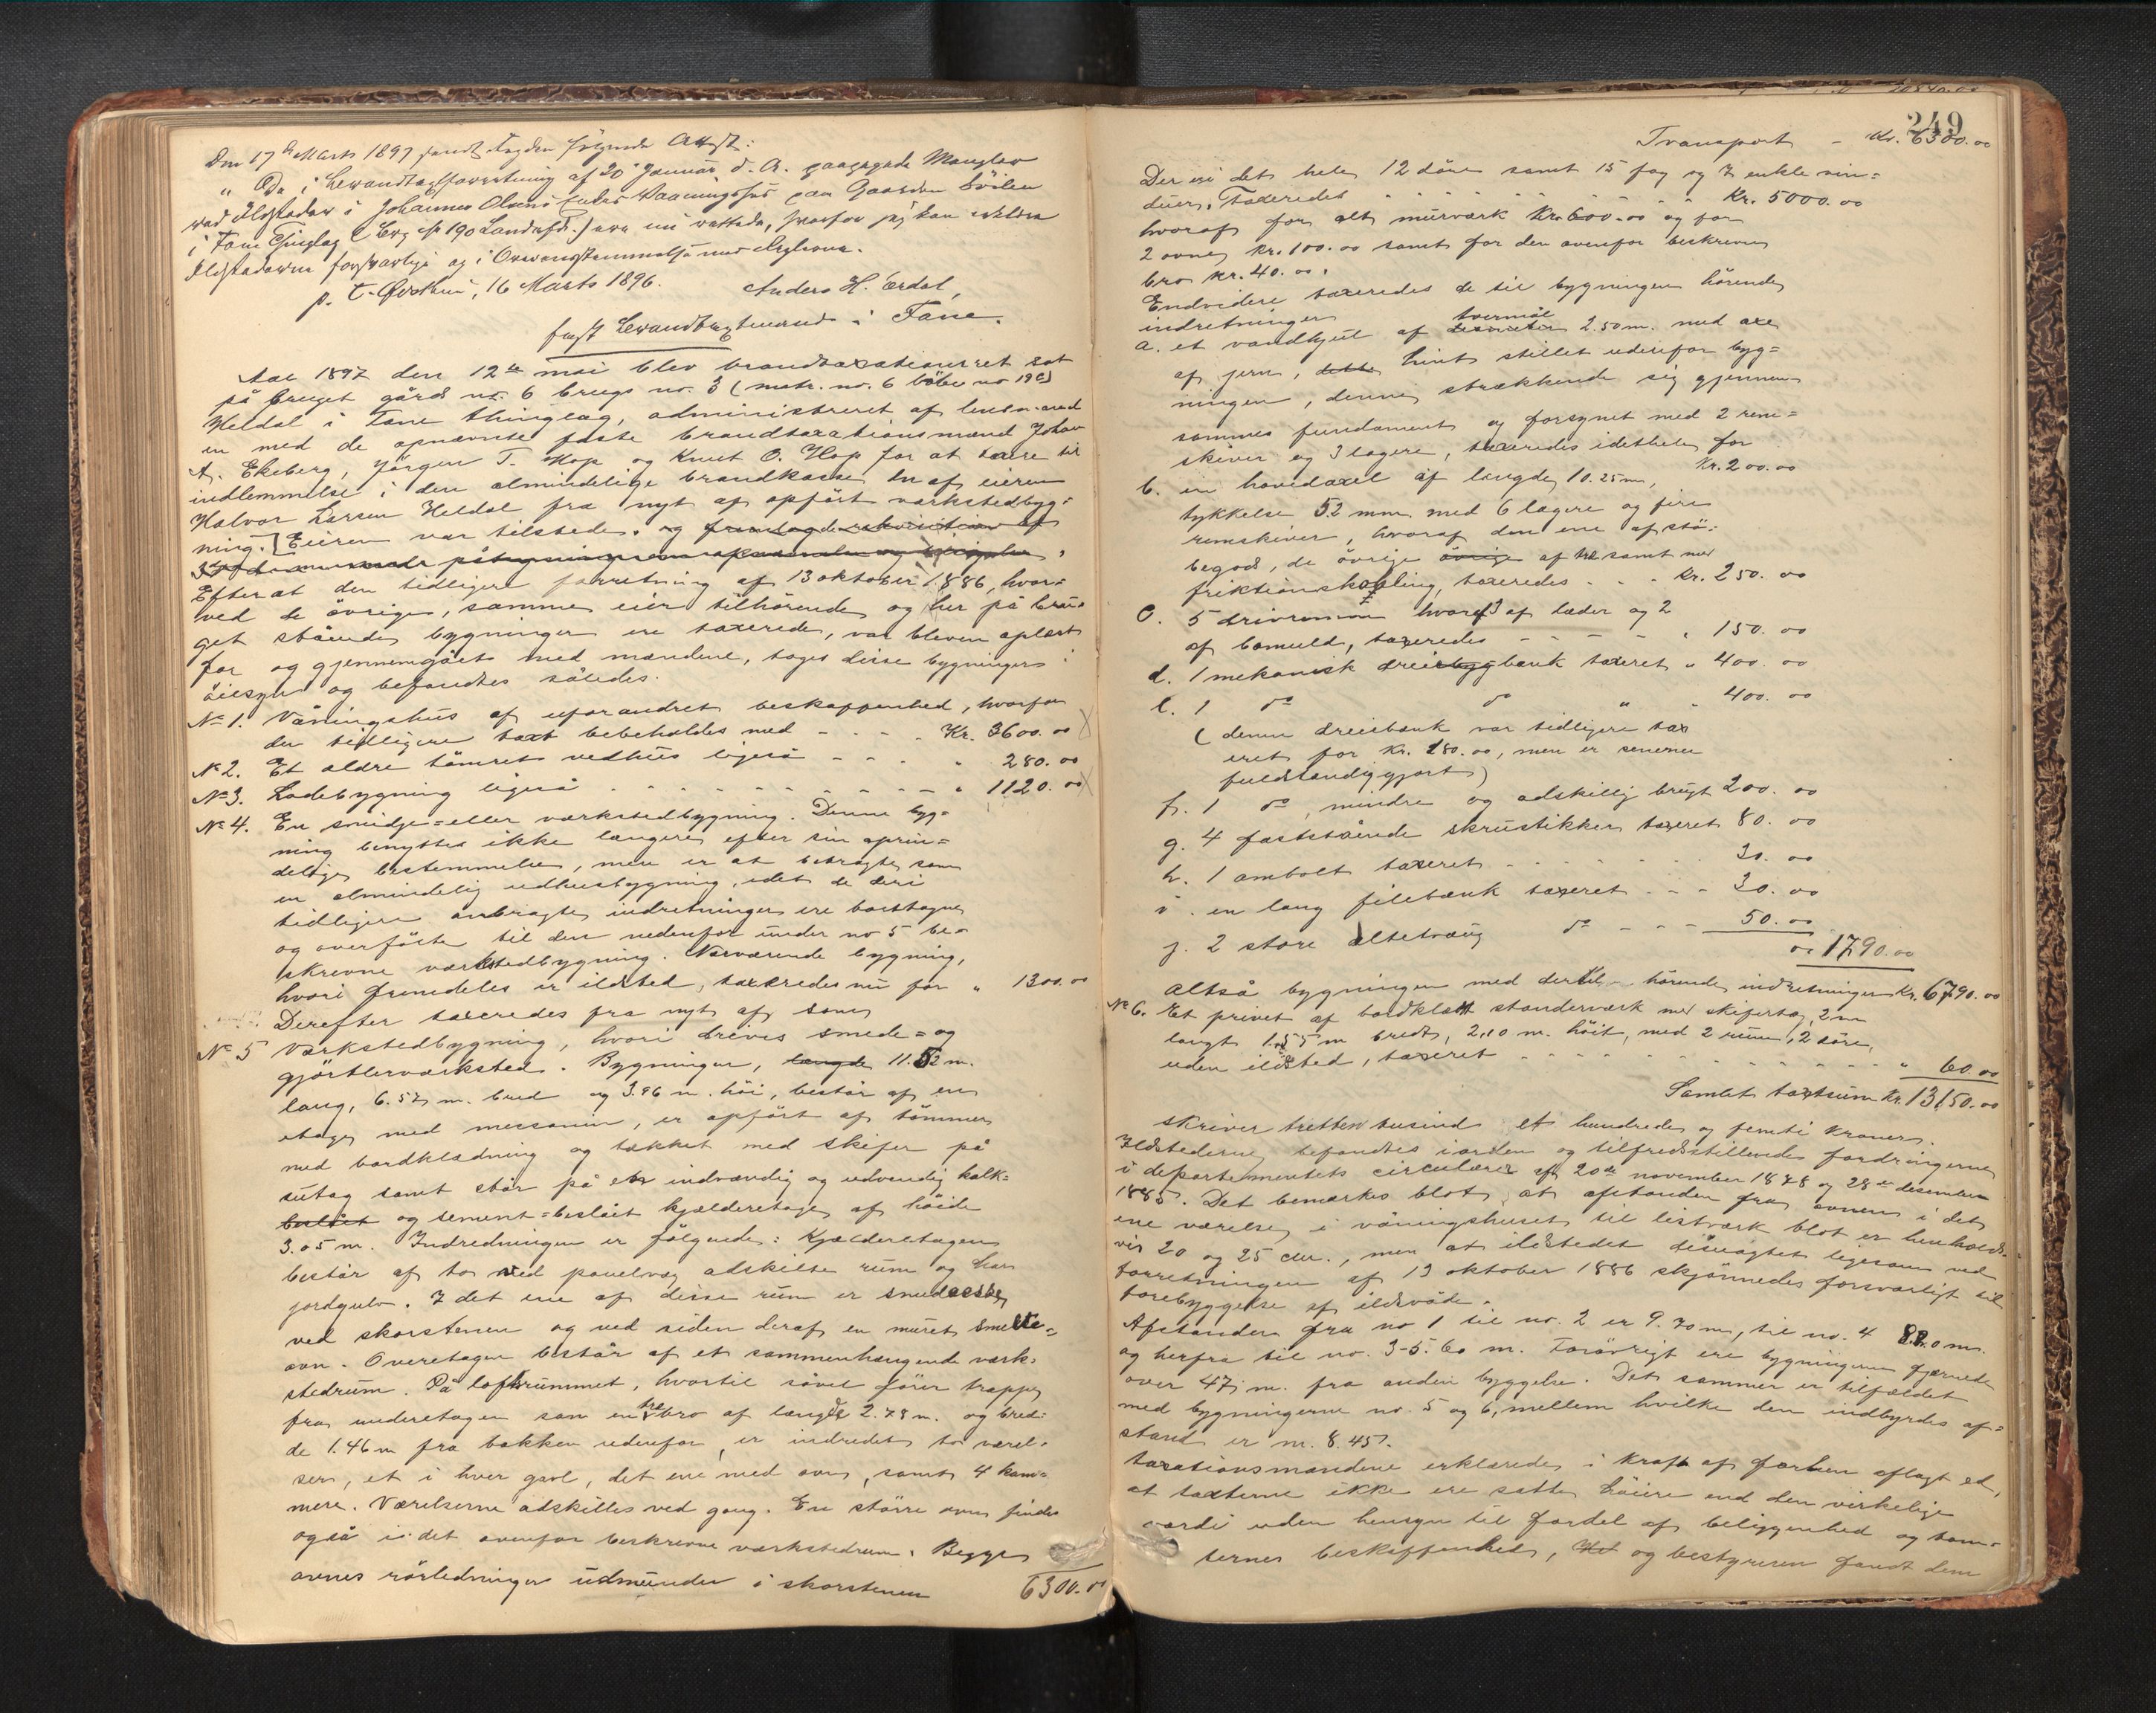 Den 17de Marts 1897 sendt Lagden følgende Attest:
"De i Lensmandstaxtforretning af 20 Januar d. A. paaklagede Mangler
ved Ildstedet i Johannes Olsens Vaaningshus paa Gaarden
i Fane Thinglag (Brg № 190 Landafd.) ere nu rettede, hvorfor jeg kan erklære
Ildstederne forsvarlige og i Overensstemmelse med Reglerne.
p. t. Østhus, 16 Marts 1896. Anders H. Ærdal,
fast i Fane.
Aar 1897 den 12te mai blev brandtaxationsret sat
på bruget gårds no. 6 brugs no. 3 (matr. no. 6 löbe no 19c)
Heldal i Fane thinglag, administreret af lensmand
en med de opnævnte faste brandtaxationsmænd Johan
A. Ekeberg, Jörgen T. Hop og Knut O. Hop for at taxere til
indlemmelse i den almindelige brandkasse en af eieren
Halvor Larsen Heldal fra nyt af opfört værkstedbyg=
ning. Eieren var tilstede. og
Efter at den tidligere forretning af 13 oktober 1886, hvor=
ved de övrige, samme eier tilhörende og her på bru=
get stående bygninger ere taxerede, var bleven oplæst
for og gjennemgået med mændene, toges disse bygninger i
öiesyn og befandtes således.
No 1. Våningshus af uforandret beskaffenhed, hvorfor
den tidligere taxt bebeholdes med - - - - Kr. 3600.00
No 2. Et ældre tömret vedhus ligeså - - - " 280.00
No 3. Ladebygning ligeså - - - - - - - " 1120.00
No 4. En smidje= eller værkstedbygning. Denne byg=
ning benyttes ikke længere efter sin oprin=
delige bestemmelse, men er at betragte som
en almindelig udhusbygning, idet de deri
tidligere anbragte indretninger ere borttagne
og overförte til den nedenfor under no 5 be=
skrevne værkstedbygning. Nærværende bygning,
hvori fremdeles er ildsted, taxeredes nu for " 1300.00
Derefter taxeredes fra nyt af som
No 5 Værkstedbygning, hvori drives smede= og
gjörtlerværksted. Bygningen, længde 11.52 m.
lang, 6.57 m. bred og 3.96 m. höi, består af en
etage med messanin, er opfört af tömmer
med bordklædning og tækket med skifer på
sutag samt står på en indvændig og udvændig kalk=
beslået og sement=beslået kjælderetage af höide
3.05 m. Indredningen er fölgende: Kjælderetagen
består af to ved panelvæg adskilte rum og har
jordgulv. I det ene af disse rum er smedeesse
ved skorstenen og ved siden deraf en muret smelte=
ovn. Overetagen består af et sammenhængende værk=
stedrum. På loftsrummet, hvortil såvel förer trappe
fra underetagen som en træbro af længde 2.78 m. og bred=
de 1.46 m fra bakken udenfor, er indredet to værel=
ser, et i hver gavl, det ene med ovn, samt 4 kam=
mere. Værelserne adskilles ved gang. En större ovn findes
også i det ovenfor beskrevne værkstedrum. Begge
ovnes rörledninger udmunder i skorstenen 6300.00
249
Transport - Kr. 6300.00
Der er i det hele 12 döre samt 15 fag og 7 enkle vin=
duer. Taxeredes - - - - - - Kr. 5000.00
hvoraf for alt murværk Kr. 600.00 og for
2 ovne Kr. 100.00 samt for den ovenfor beskrevne
bro Kr. 40.00.
Endvidere taxeredes de til bygningen hörende
indretninger
a. et vandhjul af diameter tvermål 2.50 m. med axe
af jern, dette hint stillet udenfor byg=
ningen, denne strækkende sig gjennem
sammes fundament og forsynet med 2 rem=
skiver og 3 lagere, taxeredes idethele for
Kr. 200.00
b. en hovedaxel af længde 10.25 m,
tykkelse 52 mm. med 6 lagere og fire
remskiver, hvoraf den ene af stö=
begods, de övrige övrige af træ samt med
friktionskobling, taxeredes - - - Kr. 250.00
c. 5 drivremme hvoraf 3 af læder og 2
af bomuld, taxeredes - - - - " 150.00
d. 1 mekanisk dreiebænk taxeret " 400.00
e. 1 do do " " 400.00
(denne dreiebænk var tidligere tax
eret for Kr. 280.00, men er senere
fuldstændiggjort)
f. 1 do, mindre og adskillig brugt 200.00
g. 4 faststående skrustikker taxeret 80.00
h. 1 ambolt taxeret - - - - - 30.00
i. en lang filebænk taxeret - - - 30.00
j. 2 store do - - - 50.00
1790.00
Altså bygningen med dertil hörende indretninger Kr. 6790.00
No 6. Et privet af bordklædt standerværk med skifertag, 2 m
langt 1.55 m bredt, 2.10 m. höit, med 2 rum, 2 döre,
uden ildsted, taxeret - - - - - - - " 60.00
Samlet taxtsum Kr. 13150.00
skriver tretten tusind et hundrede og femti Kroner.
Ildstederne befandtes iorden og tilfredsstillende fordringerne
i departementets circulærer af 20de november 1878 og 28de desember
1885. Det bemærkes blot, at afstanden fra ovnen i det
ene værelse i våningshuset til listværk blot er henholds=
vis 20 og 25 cm., men at ildstedet desuagtet ligesom ved
forretningen af 13 oktober 1886 skjönnedes forsvarligt til
forebyggelse af ildsvåde.
Afstanden fra no 1 til no. 2 er 9.70 m, til no. 4 8.80 m.
og herfra til no. 3-5.60 m. Forövrigt ere bygningerne fjernede
over 47 m. fra anden byggelse. Det samme er tilfældet
med bygningerne no. 5 og 6, mellem hvilke den indbyrdes af=
stand er m. 8.45.
Taxationsmændene erklærede i kraft af forhen aflagt ed,
at taxterne ikke ere satte höiere end den virkelige
værdi uden hensyn til fordel af beliggenhed og tom=
ternes beskaffenhed, og bestyreren fandt dem